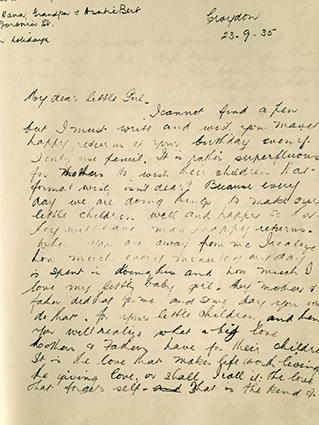 Nana, Grandpa & Auntie Bert
Boronia St.
holidays
Croydon
23-9-35
My dear Little Girl.
I cannot find a pen
but I must write and wish you many
happy returns of your birthday even if
I only use pencil. It is rather superfluous
for Mothers to wish their children that
formal wish, isn't dear? Because every
day we are doing things to make our
little children well and happy so that
they will have many happy returns.
When you are away from me I realize
how much every minute of my day
is spent in doing this and how much I
love my little baby girl. My mother &
father did that for me and some day you will
do that for your little children, and then
you will realize what a big love
Mothers & Fathers have for their children
It is the love that makes life worth living
the giving love, or shall I call it the love
that forgets self. That is the kind of